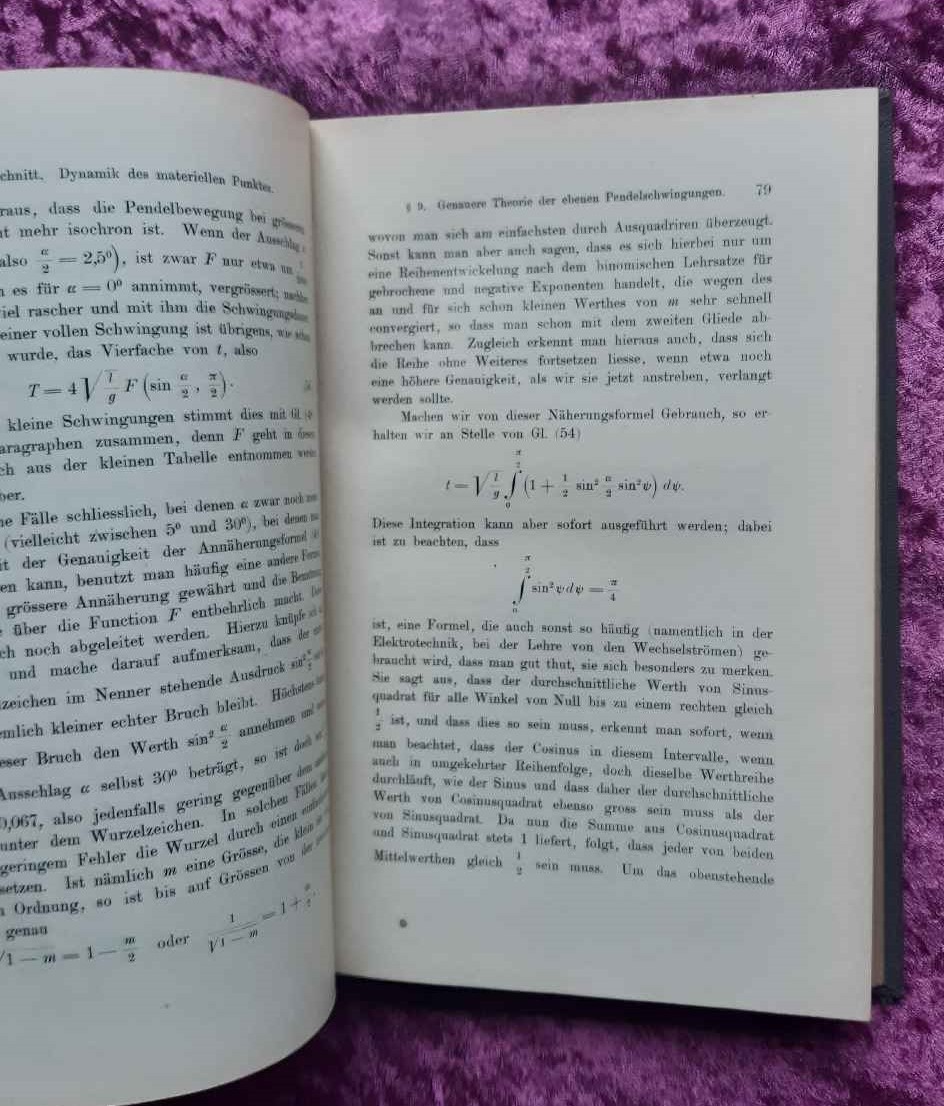 chnitt. Dynamik des materiellen Punktes.
raus, dass die Pendelbewegung bei grösseren
nt mehr isochron ist. Wenn der Ausschlag
also α/2 = 2,5⁰), ist zwar F nur etwa um
n es für α = 0⁰ annimmt, vergrössert; nachher
viel rascher und mit ihm die Schwingungsdauer
einer vollen Schwingung ist übrigens, wie schon
wurde, das Vierfache von t, also
T = 4 √(l/g) F (sin α/2, π/2).
kleine Schwingungen stimmt dies mit Gl.
aragraphen zusammen, denn F geht in diesem
ch aus der kleinen Tabelle entnommen werden
ber.
ne Fälle schliesslich, bei denen α zwar noch
(vielleicht zwischen 5⁰ und 30⁰), bei denen
it der Genauigkeit der Annäherungsformel
en kann, benutzt man häufig eine andere Formel
grössere Annäherung gewährt und die Benutzung
e über die Function F entbehrlich macht.
ch noch abgeleitet werden. Hierzu knüpfe ich
und mache darauf aufmerksam, dass der
zeichen im Nenner stehende Ausdruck sin² α/2
emlich kleiner echter Bruch bleibt. Höchstens
eser Bruch den Werth sin² α/2 annehmen und
Ausschlag α selbst 30⁰ beträgt, so ist doch
0,067, also jedenfalls gering gegenüber dem
unter dem Wurzelzeichen. In solchen Fällen
geringem Fehler die Wurzel durch einen
setzen. Ist nämlich m eine Grösse, die klein
n Ordnung, so ist bis auf Grössen von der
genau
√1 — m = 1 — m/2 oder 1/√1 — m = 1 +
§ 9. Genauere Theorie der ebenen Pendelschwingungen. 79
wovon man sich am einfachsten durch Ausquadriren überzeugt.
Sonst kann man aber auch sagen, dass es sich hierbei nur um
eine Reihenentwickelung nach dem binomischen Lehrsatze für
gebrochene und negative Exponenten handelt, die wegen des
an und für sich schon kleinen Werthes von m sehr schnell
convergiert, so dass man schon mit dem zweiten Gliede ab-
brechen kann. Zugleich erkennt man hieraus auch, dass sich
die Reihe ohne Weiteres fortsetzen liesse, wenn etwa noch
eine höhere Genauigkeit, als wir sie jetzt anstreben, verlangt
werden sollte.
Machen wir von dieser Näherungsformel Gebrauch, so er-
halten wir an Stelle von Gl. (54)
t = √(l/g) ∫₀^(π/2) (1 + 1/2 sin² α/2 sin² ψ) dψ.
Diese Integration kann aber sofort ausgeführt werden; dabei
ist zu beachten, dass
∫₀^(π/2) sin² ψ dψ = π/4
ist, eine Formel, die auch sonst so häufig (namentlich in der
Elektrotechnik, bei der Lehre von den Wechselströmen) ge-
braucht wird, dass man gut thut, sie sich besonders zu merken.
Sie sagt aus, dass der durchschnittliche Werth von Sinus-
quadrat für alle Winkel von Null bis zu einem rechten gleich
1/2 ist, und dass dies so sein muss, erkennt man sofort, wenn
man beachtet, dass der Cosinus in diesem Intervalle, wenn
auch in umgekehrter Reihenfolge, doch dieselbe Werthreihe
durchläuft, wie der Sinus und dass daher der durchschnittliche
Werth von Cosinusquadrat ebenso gross sein muss als der
von Sinusquadrat. Da nun die Summe aus Cosinusquadrat
und Sinusquadrat stets 1 liefert, folgt, dass jeder von beiden
Mittelwerthen gleich 1/2 sein muss. Um das obenstehende